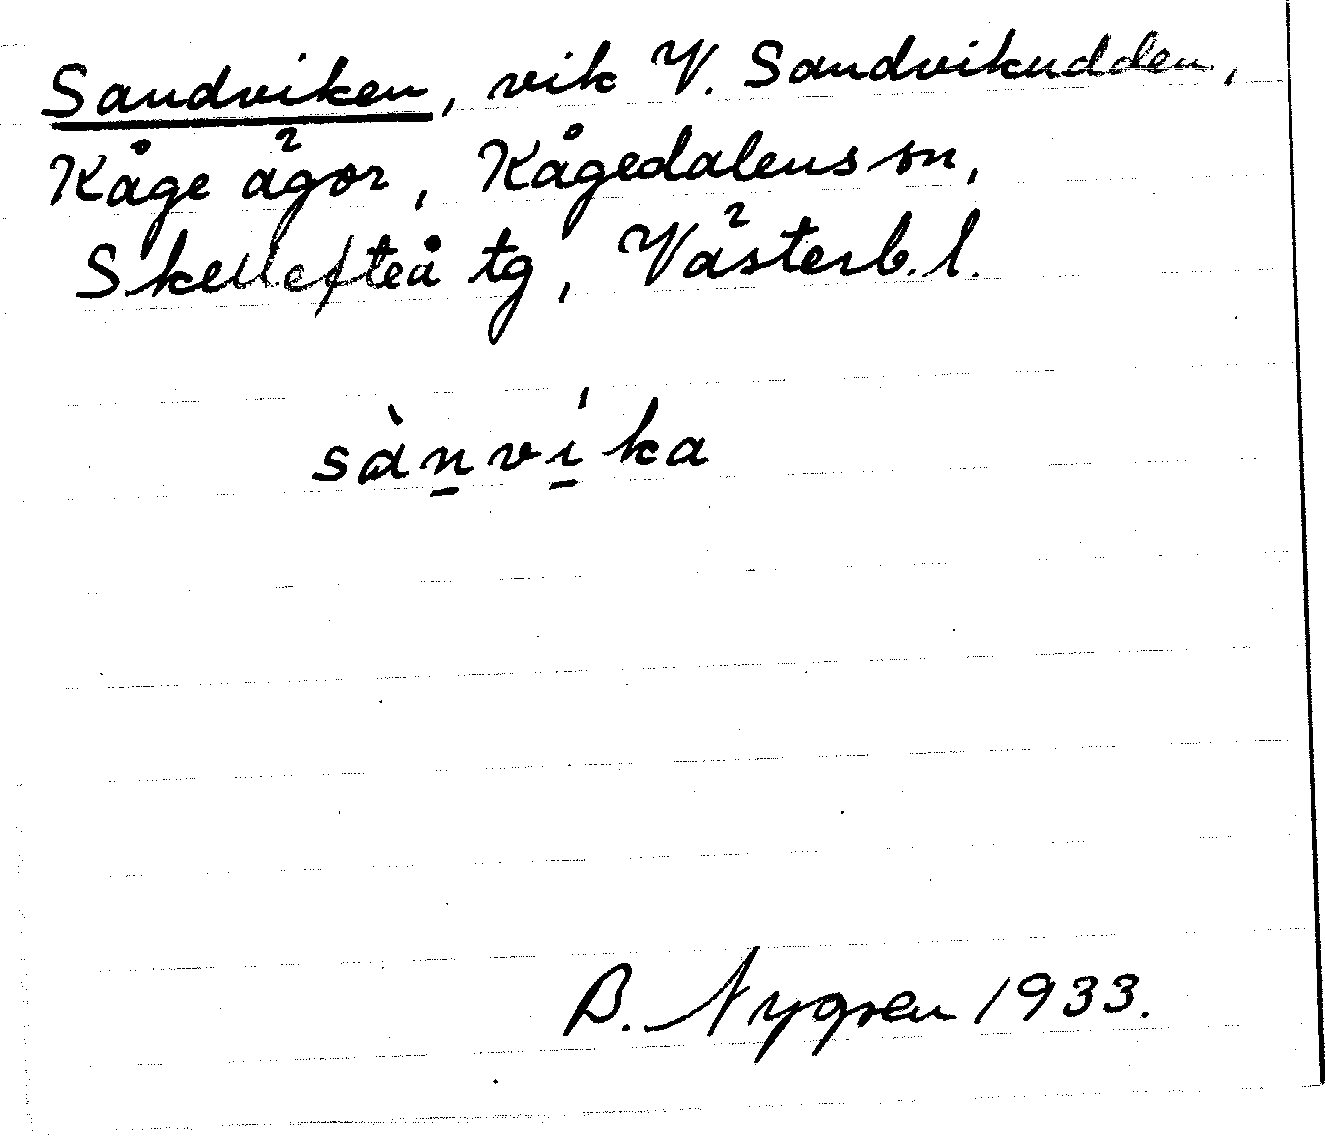 Sandviken, vik V. Sandvikudden,
Kåge ägor, Kågedalens sn,
Skellefteå tg, Västerb. l.
sàn̠vi̠̍ka
B. Nygren 1933.